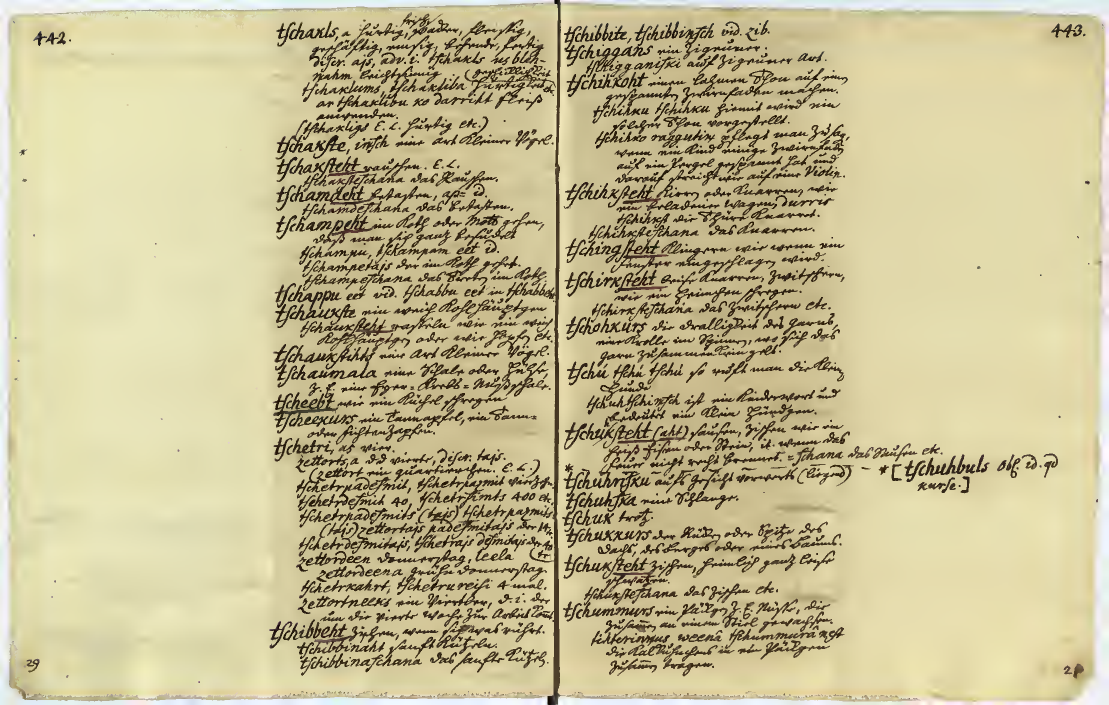 442.
tschakls, a hurtig, frisch, wacker, fleißig,
geschäftig, emsig, behende, fertig
discr. ajs, adv. i. tschakls us bleh-
nahm leichtsinnig
tschaklums, tschakliba hurtigkeit
ar tschaklibu ko darriht Fleiß
anwenden.
(tschakligs E. L. hurtig etc.)
tschakste, insch eine art kleiner Vögel.
tschaksteht rauschen. E. L.
tschaksteschana das Rauschen.
tschamdeht betasten, ap= id.
tschamdeschana das betasten.
tschampeht im Koth oder Moth gehen,
daß man sich ganz besudelt
tschampu, tschampam eet id.
tschampetajs der im Koth gehet.
tschampeschana das Treten im Koth.
tschappu eet vid. tschabbu eet in tschabbeht
tschaukste ein weich Kohlhäuptgen
tschauksteht rasteln wie ein weich
Kohlhäuptgen oder wie Hopfen etc.
tschaukstihts eine Art kleiner Vögel.
tschaumala eine Schale oder Hülse
z. E. eine Eyer= Krebs= Nußschale.
tscheebt wie ein Küchel schreyen
tscheekurs ein Tannapfel, ein Tann=
oder Fichtenzapfen.
tschetri, as vier.
zettorts, a d. d vierte, discr. tajs.
(zettort ein quartierchen. E. L.)
tschetrpadesmit, tschetrpazmit vierzehn
tschetrdesmit 40, tschetrsimts 400 etc.
tschetrpadesmits (tajs) tschetrpazmits
(tajs) zettortajs padesmitajs der 14te
tschetrdesmitajs, tschetrajs desmitajs der 40
zettordeen Donnerstag, leela (te
zettordeena grühn Donnerstag.
tschetrkahrt, tschetrureisi 4 mal.
zettortneeks ein Viertler, d. i. der
um die vierte Woche zur Arbeit kömt.
tschibbeht ziehen, wenn sich was rührt.
tschibbinaht sanft kützeln.
tschibbinaschana das sanfte kützeln.
29
443.
tschibbite, tschibbinsch vid. zib.
tschiggans ein Zigeuner.
tschigganiski auf Zigeuner Art.
tschihkoht einen lahmen Thon auf ein
gespannten Zwirnfaden machen.
tschihku tschihku hiemit wird ein
solcher Thon vorgestellt.
tschihko raggutin pflegt man zu sag.
wenn ein Kind einige Zwirnfaden
auf ein Pergel gespannt hat und
darauf streicht wie auf eine Violin.
tschihksteht Kirren oder Knarren, wie
ein beladener Wagen, durris
tschihkst die Thüre knarret.
tschihksteschana das Knarren.
tschingsteht klingern wie wenn ein
Fenster eingeschlagen wird.
tschirksteht leise knarren, zwitschern,
wie ein Heimchen schreyen.
tschirksteschana das zwitschern etc.
tschohkurs die dralligkeit des Garns,
eine Krolle im Spinnen, wo sich das
garn zusammen kringelt.
tschu tschu tschu so ruft man die klein
Hunde.
tschuhtschinsch ist ein Kinderwort und
bedeutet ein klein Hündgen.
tschuksteht (aht) sausen, zischen wie ein
heiß Eisen oder Stein, it. wenn das
Feuer nicht recht brennet. =schana das Sausen etc.
* tschuhrisku aufs Gesicht vorwerts (liegend) – * [ tschuhbuls Obs. id. qd
kurse. ]
tschuhska eine Schlange.
tschuk trotz.
tschukkurs der Rücken oder Spitze des
dachs, des berges oder eines baums.
tschuksteht zischen, heimlich ganz leise
schwatzen.
tschuksteschana das Zischen etc.
tschummurs ein Päckgen z. E. Nüße, die
zusam̄en an einem Stiel gewachsen.
tikkerinnus weenâ tschummurâ nest
die Kaldunchens in ein Päckgen
zusam̄en tragen.